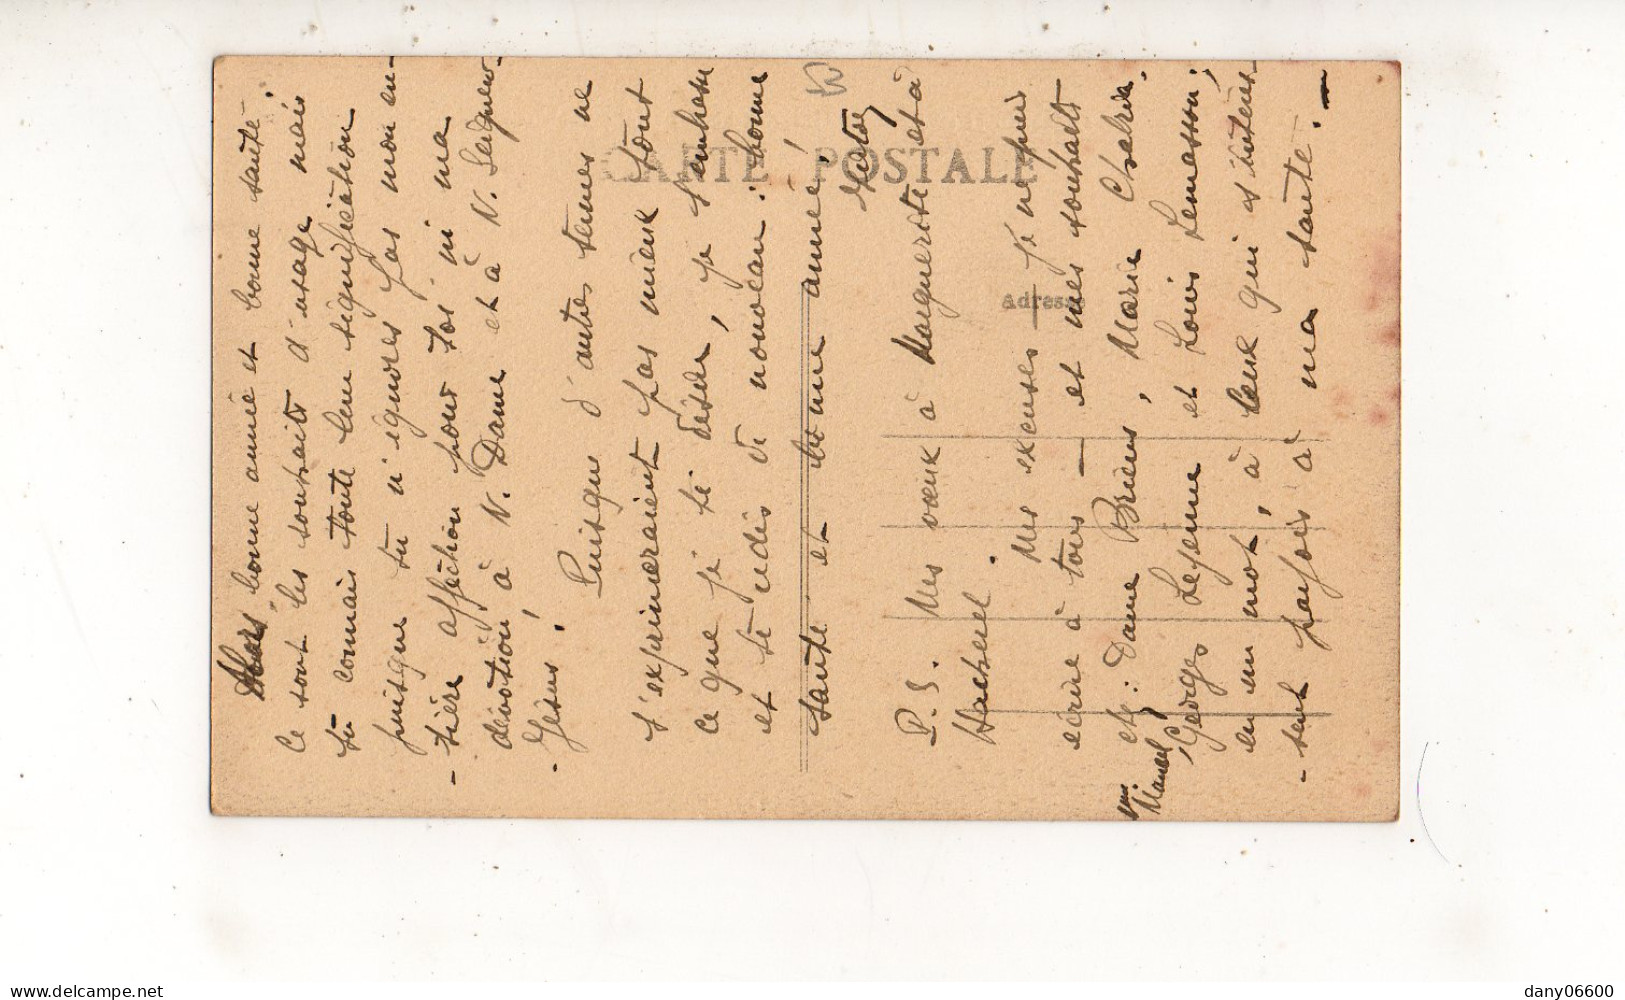 bonne année et bonne santé.
ce sont les souhaits d'usage mais
tu connais toute leur signification
puisque tu n'ignores pas mon en-
-tière affection pour toi ni ma
dévotion à N. Dame et à N. Seigneur-
-Jésus !
Puisque d'autres termes ne
s'exprimeraient pas mieux tout
ce que je te désire, je t'embrasse
et te redis de nouveau : bonne
santé et bonne année !
CARTE POSTALE
P.S. Mes vœux à Marguerite et à
Adresse
Mes excuses je ne puis
écrire à tous — et mes souhaits
etc : Dame Briens, Marie
Mme Marcel
Georges Lejeune et Louis Lemasson,
en un mot, à ceux qui s'intéres-
-sent parfois à ma santé. —
delcampe.net
dany06600